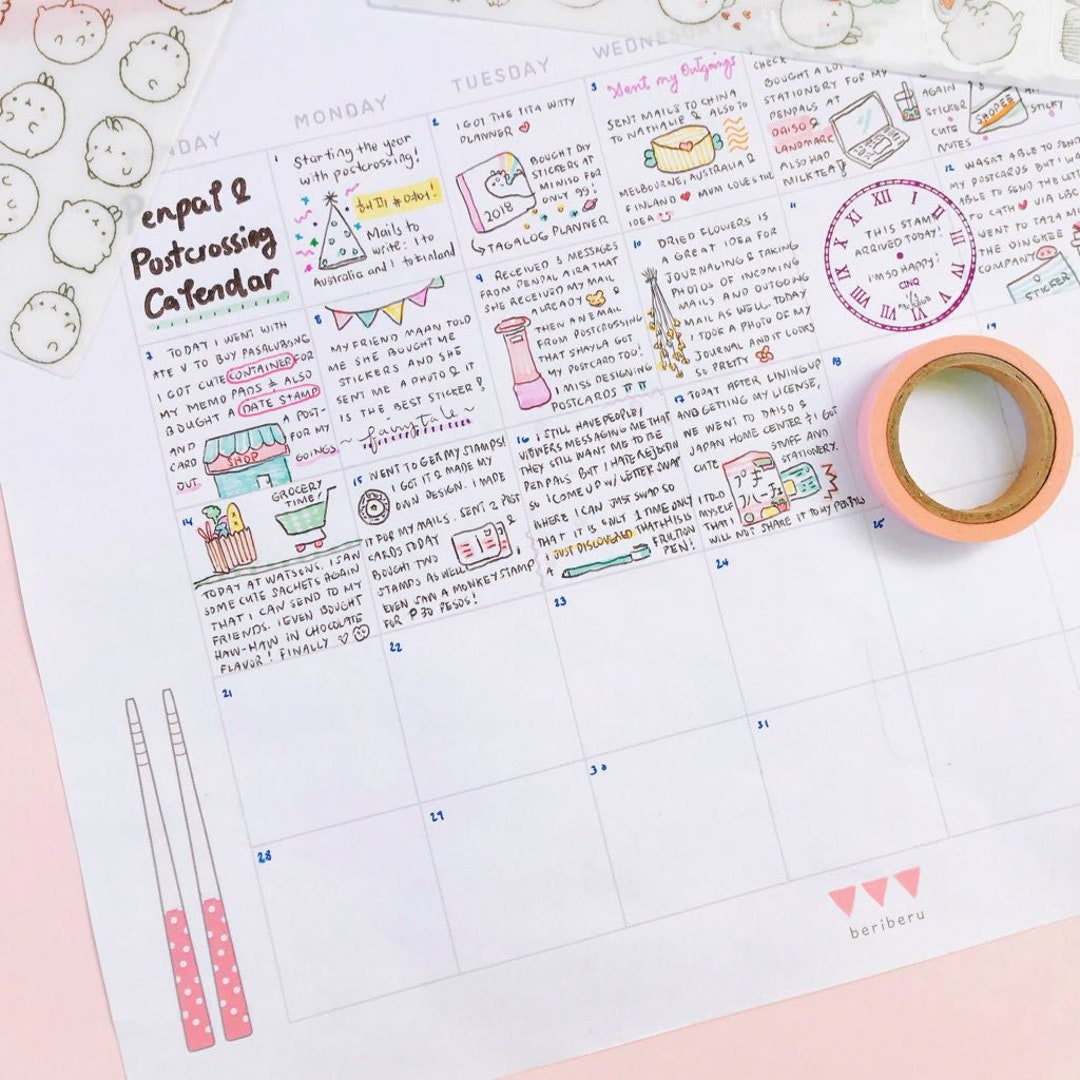 MONDAY
TUESDAY
Penpal &
Postcrossing
Calendar
1
Starting the year
with postcrossing!
Mails to
write: 1 to
Australia and 1 to Finland
2
I GOT THE TITA WITTY
PLANNER
2018
BOUGHT DIY
STICKERS AT
MINISO FOR
ONLY 99!
TAGALOG PLANNER
3
Sent my Outgoings
SENT MAILS TO CHINA
TO NATHALIE & ALSO TO
MELBOURNE, AUSTRALIA &
FINLAND MUM LOVES THE
IDEA
CHECK
BOUGHT A LOT
STATIONERY FOR MY
PENPALS AT
DAISO &
LANDMARK
ALSO HAD
MILKTEA
AGAIN
STICKER
CUTE
NOTES
SHOPEE
STICKY
7
TODAY I WENT WITH
ATE V TO BUY PASALUBONG
I GOT CUTE CONTAINER FOR
MY MEMO PADS & ALSO
BOUGHT A DATE STAMP
AND A POST-
CARD FOR MY
OUT GOINGS
SHOP
8
MY FRIEND MAAN TOLD
ME SHE BOUGHT ME
STICKERS AND SHE
SENT ME A PHOTO & IT
IS THE BEST STICKER!
~ fairytale ~
9
RECEIVED 3 MESSAGES
FROM PENPAL AIRA THAT
SHE RECEIVED MY MAIL
ALREADY
THEN AN EMAIL
POSTCROSSING
THAT SHAYLA GOT
MY POSTCARD TOO!
I MISS DESIGNING
POSTCARDS
10
DRIED FLOWERS IS
A GREAT IDEA FOR
JOURNALING & TAKING
PHOTOS OF INCOMING
MAILS AND OUTGOING
MAIL AS WELL. TODAY
I TOOK A PHOTO OF MY
JOURNAL AND IT LOOKS
SO PRETTY
11
XII I II III IV V VI VII VIII IX X XI
THIS STAMP
ARRIVED TODAY!
I'M SO HAPPY!
CINQ
12
WASN'T ABLE TO SEND
MY POSTCARDS BUT I WAS
ABLE TO SEND THE LETTER
TO CATH VIA LBC
WENT TO TAZA M
THE OINGKEE
COMPANY
STICKER
14
GROCERY
TIME!
TODAY AT WATSONS, I SAW
SOME CUTE SACHETS AGAIN
THAT I CAN SEND TO MY
FRIENDS. I EVEN BOUGHT
HAW-HAW IN CHOCOLATE
FLAVOR! FINALLY
15
WENT TO GET MY STAMPS!
I GOT IT & MADE MY
OWN DESIGN. I MADE
IT FOR MY MAILS. SENT 2 POST
CARDS TODAY &
BOUGHT TWO
STAMPS AS WELL
EVEN SAW A MONKEY STAMP
FOR ₱30 PESOS!
16
I STILL HAVE PEOPLE/
VIEWERS MESSAGING ME THAT
THEY STILL WANT ME TO BE
PENPALS BUT I HATE REJECTION
SO I COME UP W/ LETTER SWAP
WHERE I CAN JUST SWAP SO
THAT IT IS ONLY 1 TIME ONLY
I JUST DISCOVERED THAT THIS IS
A FRICTION
PEN!
17
TODAY AFTER LINING UP
AND GETTING MY LICENSE,
WE WENT TO DAISO &
JAPAN HOME CENTER & I GOT
CUTE STUFF AND
STATIONERY.
I TOLD
MYSELF
THAT I
WILL NOT SHARE IT TO MY PENPALS
18
19
21
22
23
24
25
28
29
30
31
beriberu